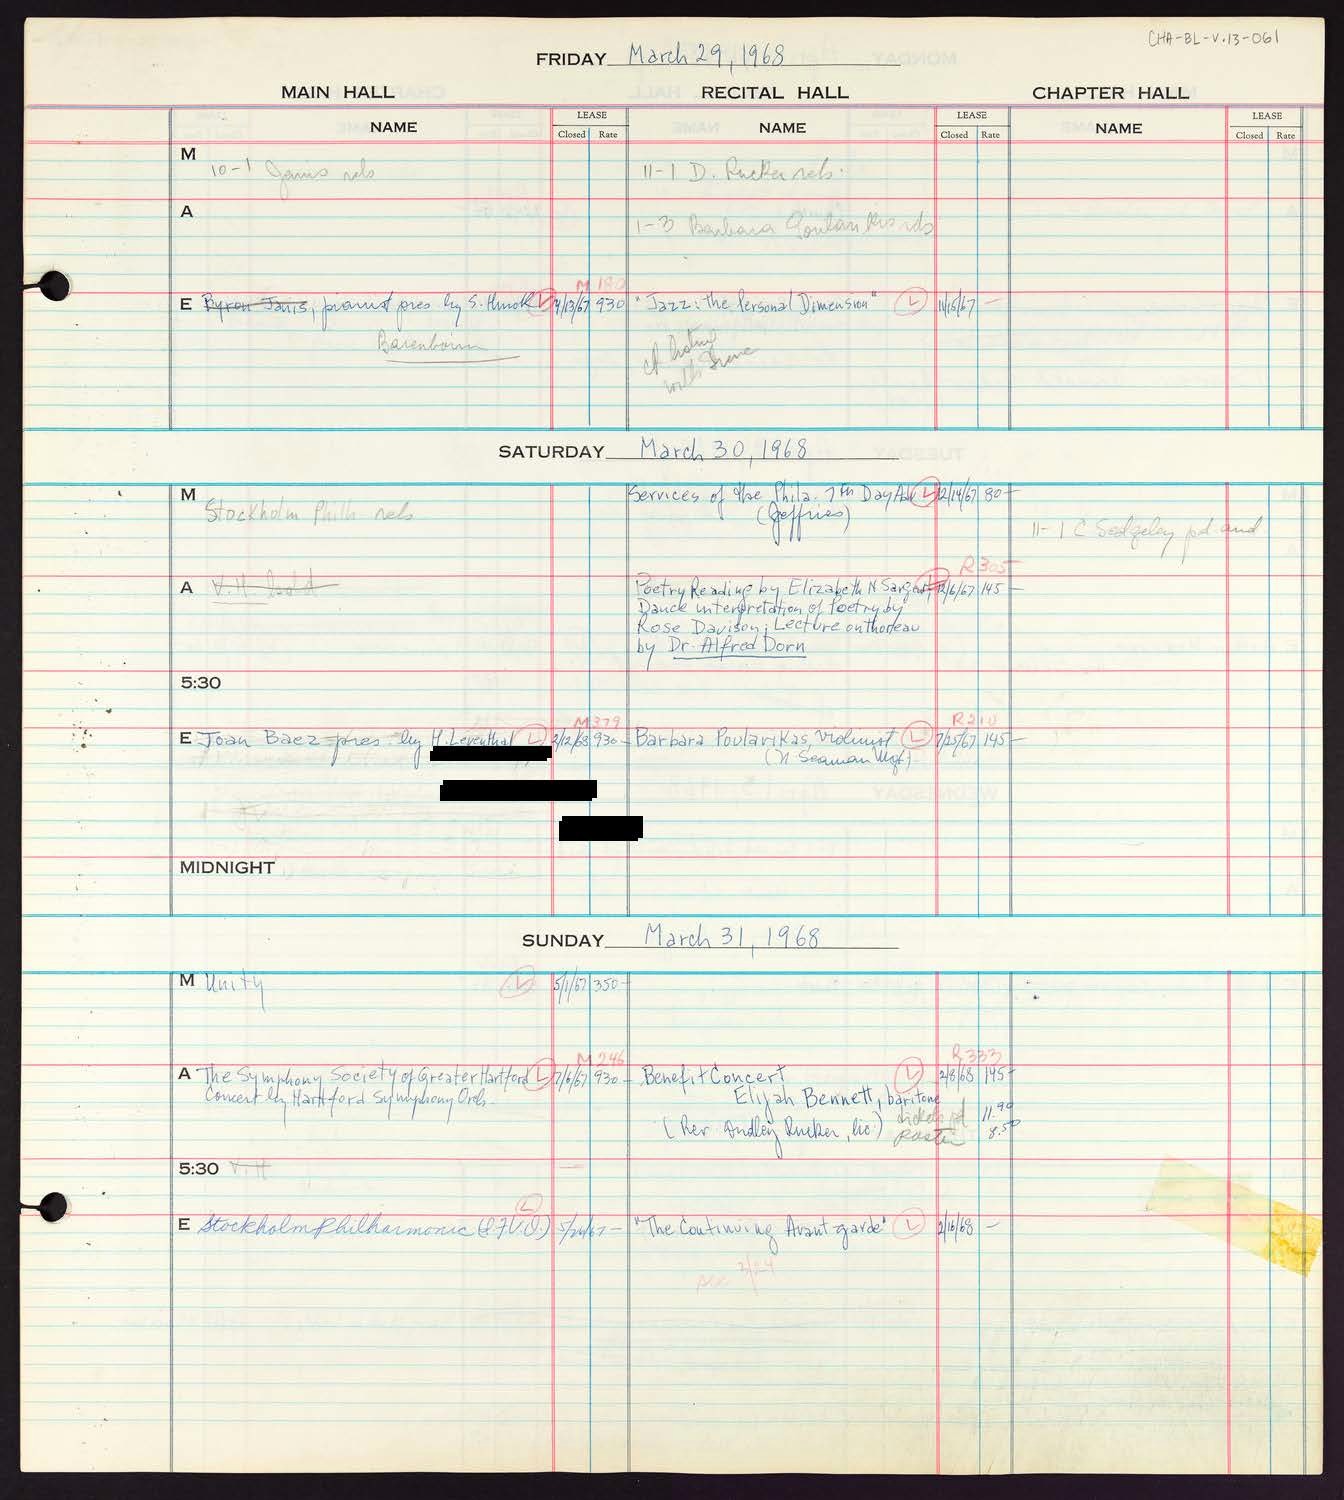 CHA-BL-V.13-061
FRIDAY March 29, 1968
MAIN HALL RECITAL HALL CHAPTER HALL
NAME LEASE NAME LEASE NAME LEASE
Closed Rate Closed Rate Closed Rate
M 10-1 Janis rels 11-1 D. Rucker rels.
A 1-3 Barbara
M 180
E Byron Janis, pianist pres by S. Hurok L 4/13/67 930 "Jazz: the Personal Dimension" L 11/15/67 —
Barenboim
with
SATURDAY March 30, 1968
M Stockholm Philh rels Services of the Phila. 7th Day Adv L 12/14/67 80-
(Jeffries)
11-1 C Sedgeley pd and
R 305
A V.H. hold Poetry Reading by Elizabeth N Sargent L 12/6/67 145 —
Dance interpretation of Poetry by
Rose Davison; Lecture on Thoreau
by Dr. Alfred Dorn
5:30
M 379 R 210
E Joan Baez pres. by H. Leventhal L 2/12/68 930 - Barbara Poularikas, violinist L 7/25/67 145 —
(N Seaman Mgt).
MIDNIGHT
SUNDAY March 31, 1968
M Unity L 5/1/67 350-
M 246 R 333
A The Symphony Society of Greater Hartford L 7/6/67 930 - Benefit Concert L 2/8/68 145-
Concert by Hartford Symphony Orch. Elijah Bennett, baritone
tickets pd 11.90
(Rev. Audley Rucker, lic.) 8.50
5:30 V.H —
L
E Stockholm Philharmonic (I.F.V.O.) 5/24/67 - "The Continuing Avant-garde" L 2/16/68 -
3/24